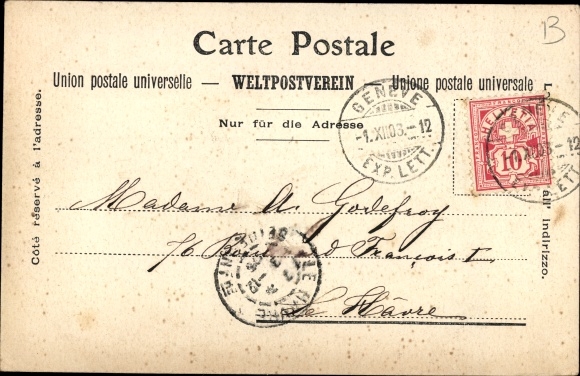 B
Carte Postale
Union postale universelle — WELTPOSTVEREIN — Unione postale universale
Nur für die Adresse
Côté réservé à l'adresse.
all' Indirizzo.
GENÈVE
-1.XII.03.-12
EXP. LETT.
HELVETIA
10
Madame A. Godefroy
76 Bould François I
Le Hâvre
LE HAVRE